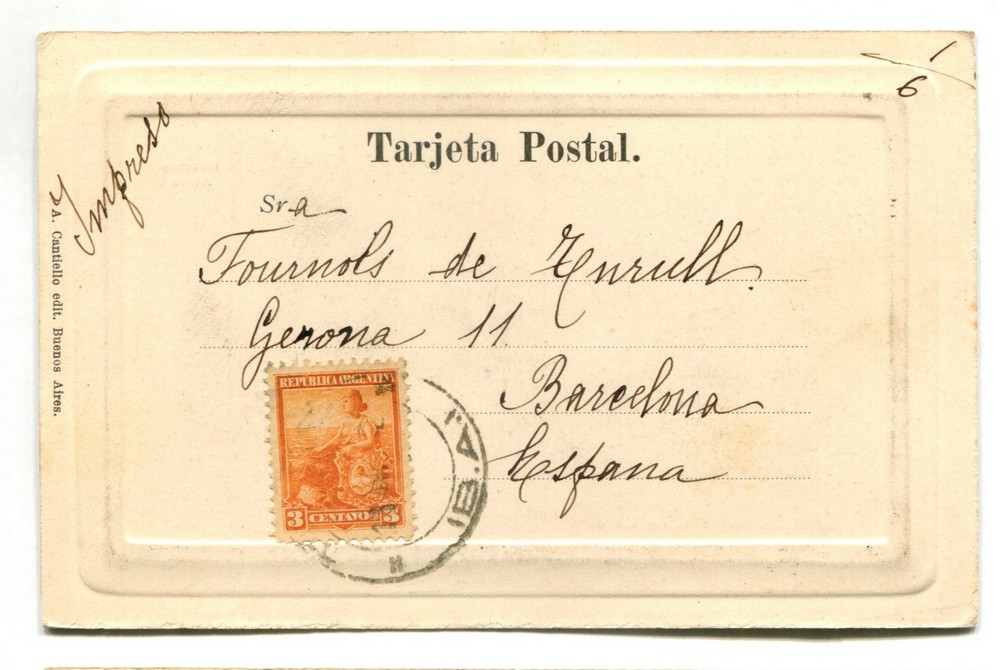 1
6
Impreso
Tarjeta Postal.
Sra
Fournols de Turull.
Gerona 11
Barcelona
Espana
REPUBLICA ARGENTINA
3 CENTAVOS 3
B.A.
A. Cantiello edit. Buenos Aires.